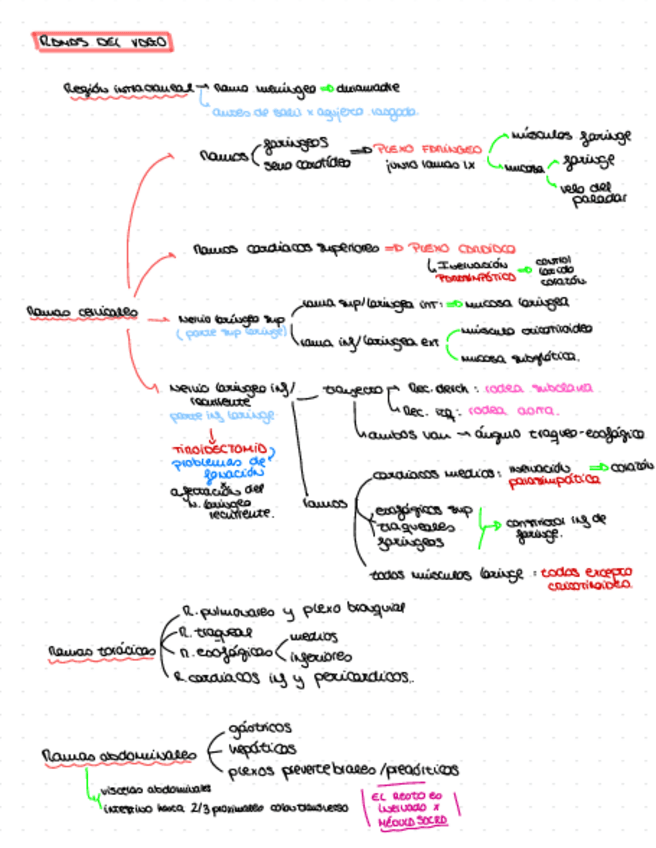 RAMAS DEL VAGO
Región intracraneal → Ramo meníngeo ⇒ duramadre
antes de salir x agujero rasgado.
Ramos
faríngeos
seno carotídeo
⇒ PLEXO FARÍNGEO
junto ramas IX
músculos faringe
mucosa
faringe
velo del
paladar
Ramos cardiacos superiores ⇒ PLEXO CARDÍACO
Inervación
PARASIMPÁTICO
⇒ control
latido
corazón
Ramas cervicales
Nervio laríngeo sup
(parte sup laringe)
rama sup/laríngea int: ⇒ mucosa laríngea
rama inf/laríngea ext
músculo cricotiroideo
mucosa subglótica.
Nervio laríngeo inf/
recurrente
parte inf laringe.
trayecto
Rec. derch: rodea subclavia
Rec. izq: rodea aorta.
ambos van → ángulo traqueo-esofágico
TIROIDECTOMÍA
problemas de
fonación
afectación del
N. laríngeo
recurrente.
ramos
cardiacos medios: inervación ⇒ corazón
parasimpática
esofágicos sup
traqueales
faríngeos
→ constrictor inf de
faringe.
todos músculos laringe: todos excepto
cricotiroideo.
Ramas torácicas
R. pulmonares y plexo bronquial
R. traqueal
R. esofágicos
medios
inferiores
R. cardiacos inf y pericardicos.
Ramas abdominales
gástricos
hepáticos
plexos prevertebrales/preaórticos
vísceras abdominales
intestino hasta 2/3 proximales colon transverso
EL RESTO ES
INERVADO X
MÉDULA SACRA